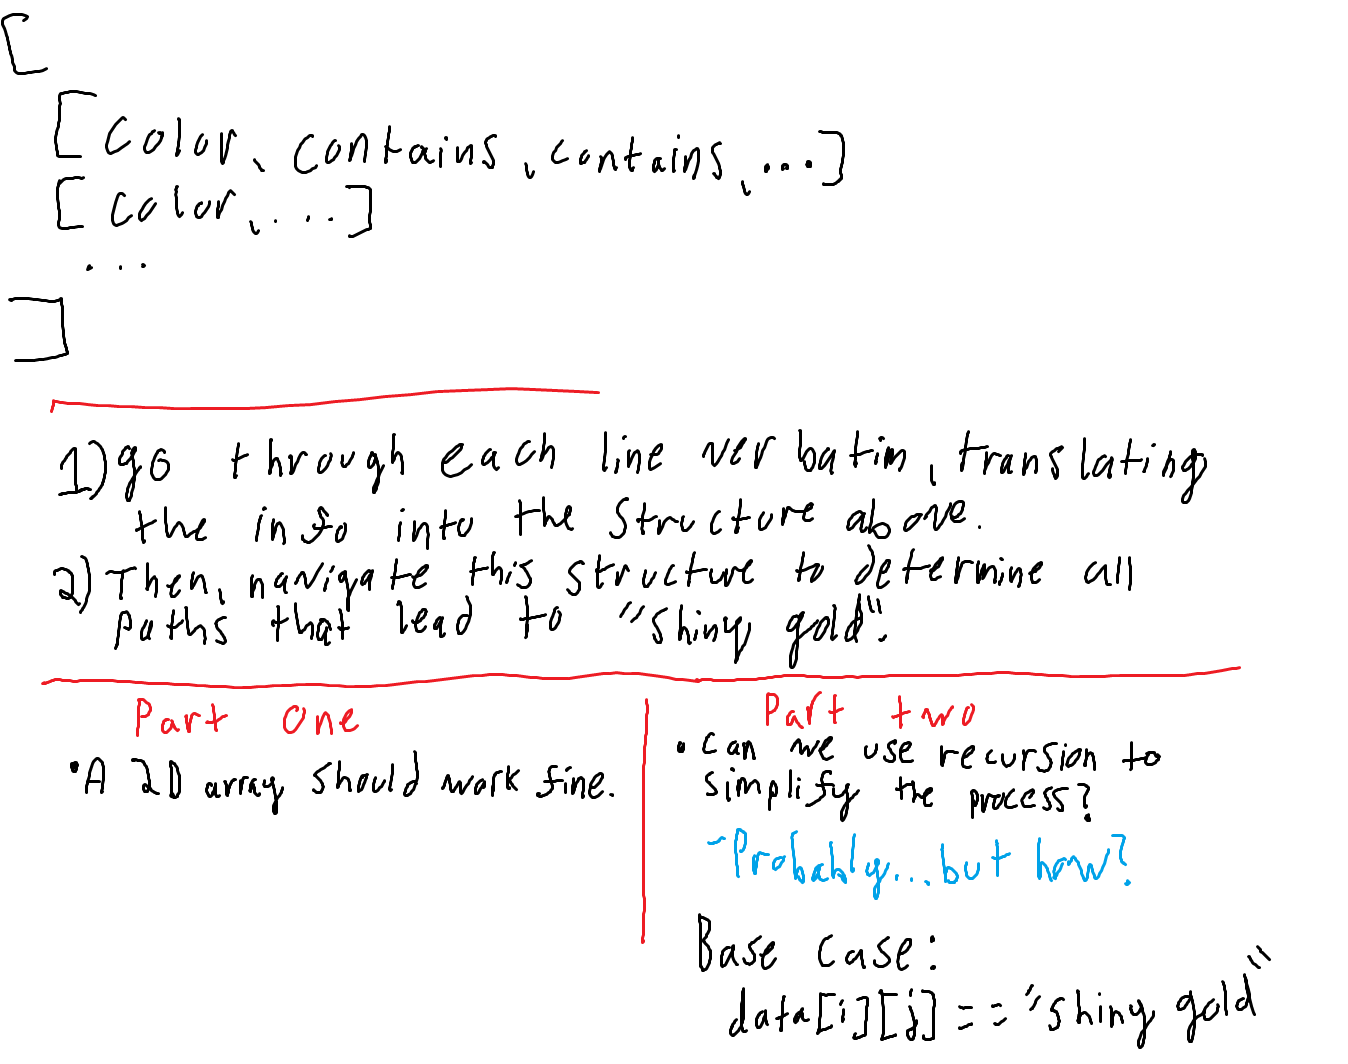 [
[color, contains, contains, ...]
[color, ...]
...
]
1) go through each line verbatim, translating
the info into the structure above.
2) Then, navigate this structure to determine all
paths that lead to "shiny gold".
Part One
• A 2D array should work fine.
Part two
• Can we use recursion to
simplify the process?
- Probably... but how?
Base case:
data[i][j] == "shiny gold"